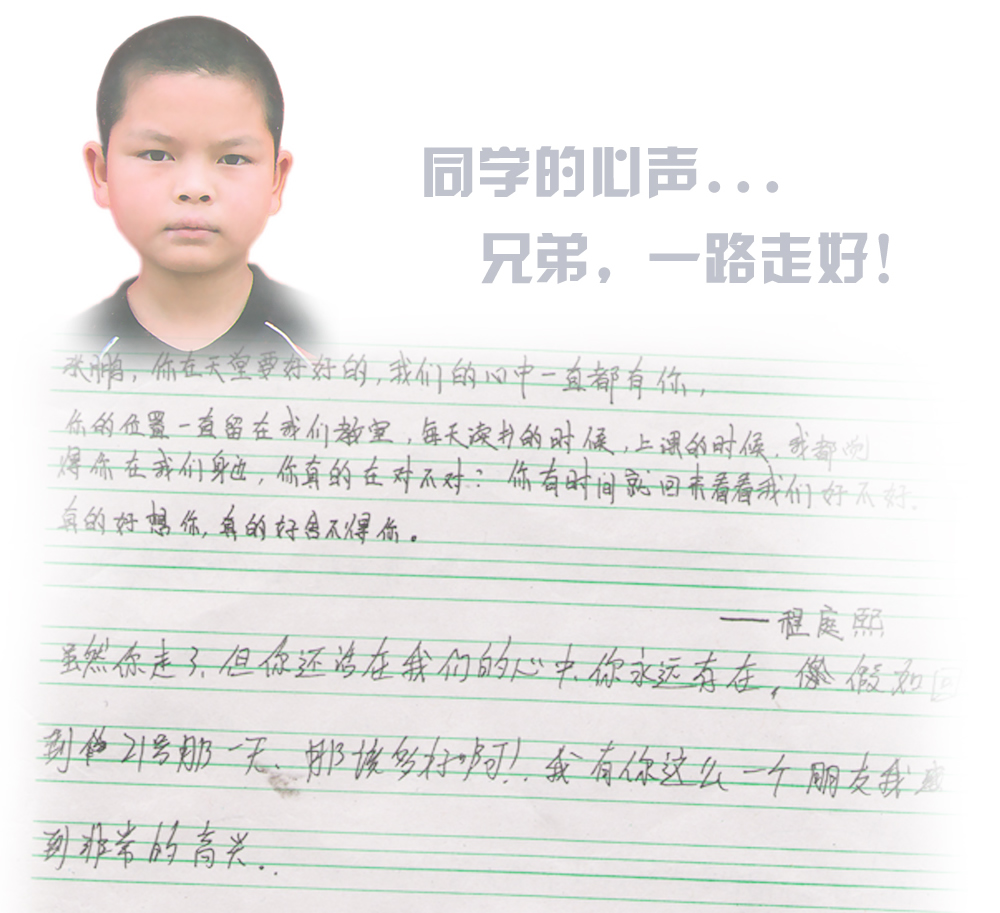 同学的心声...
兄弟，一路走好！
张鹏，你在天堂要好好的，我们的心中一直都有你，
你的位置一直留在我们教室，每天读书的时候，上课的时候，我都觉
得你在我们身边，你真的在对不对？你有时间就回来看看我们好不好。
真的好想你，真的好舍不得你。
——程庭熙
虽然你走了，但你还活在我们的心中，你永远存在，假如回
到 21号那一天、那该多好啊！我有你这么一个朋友我感
到非常的高兴．